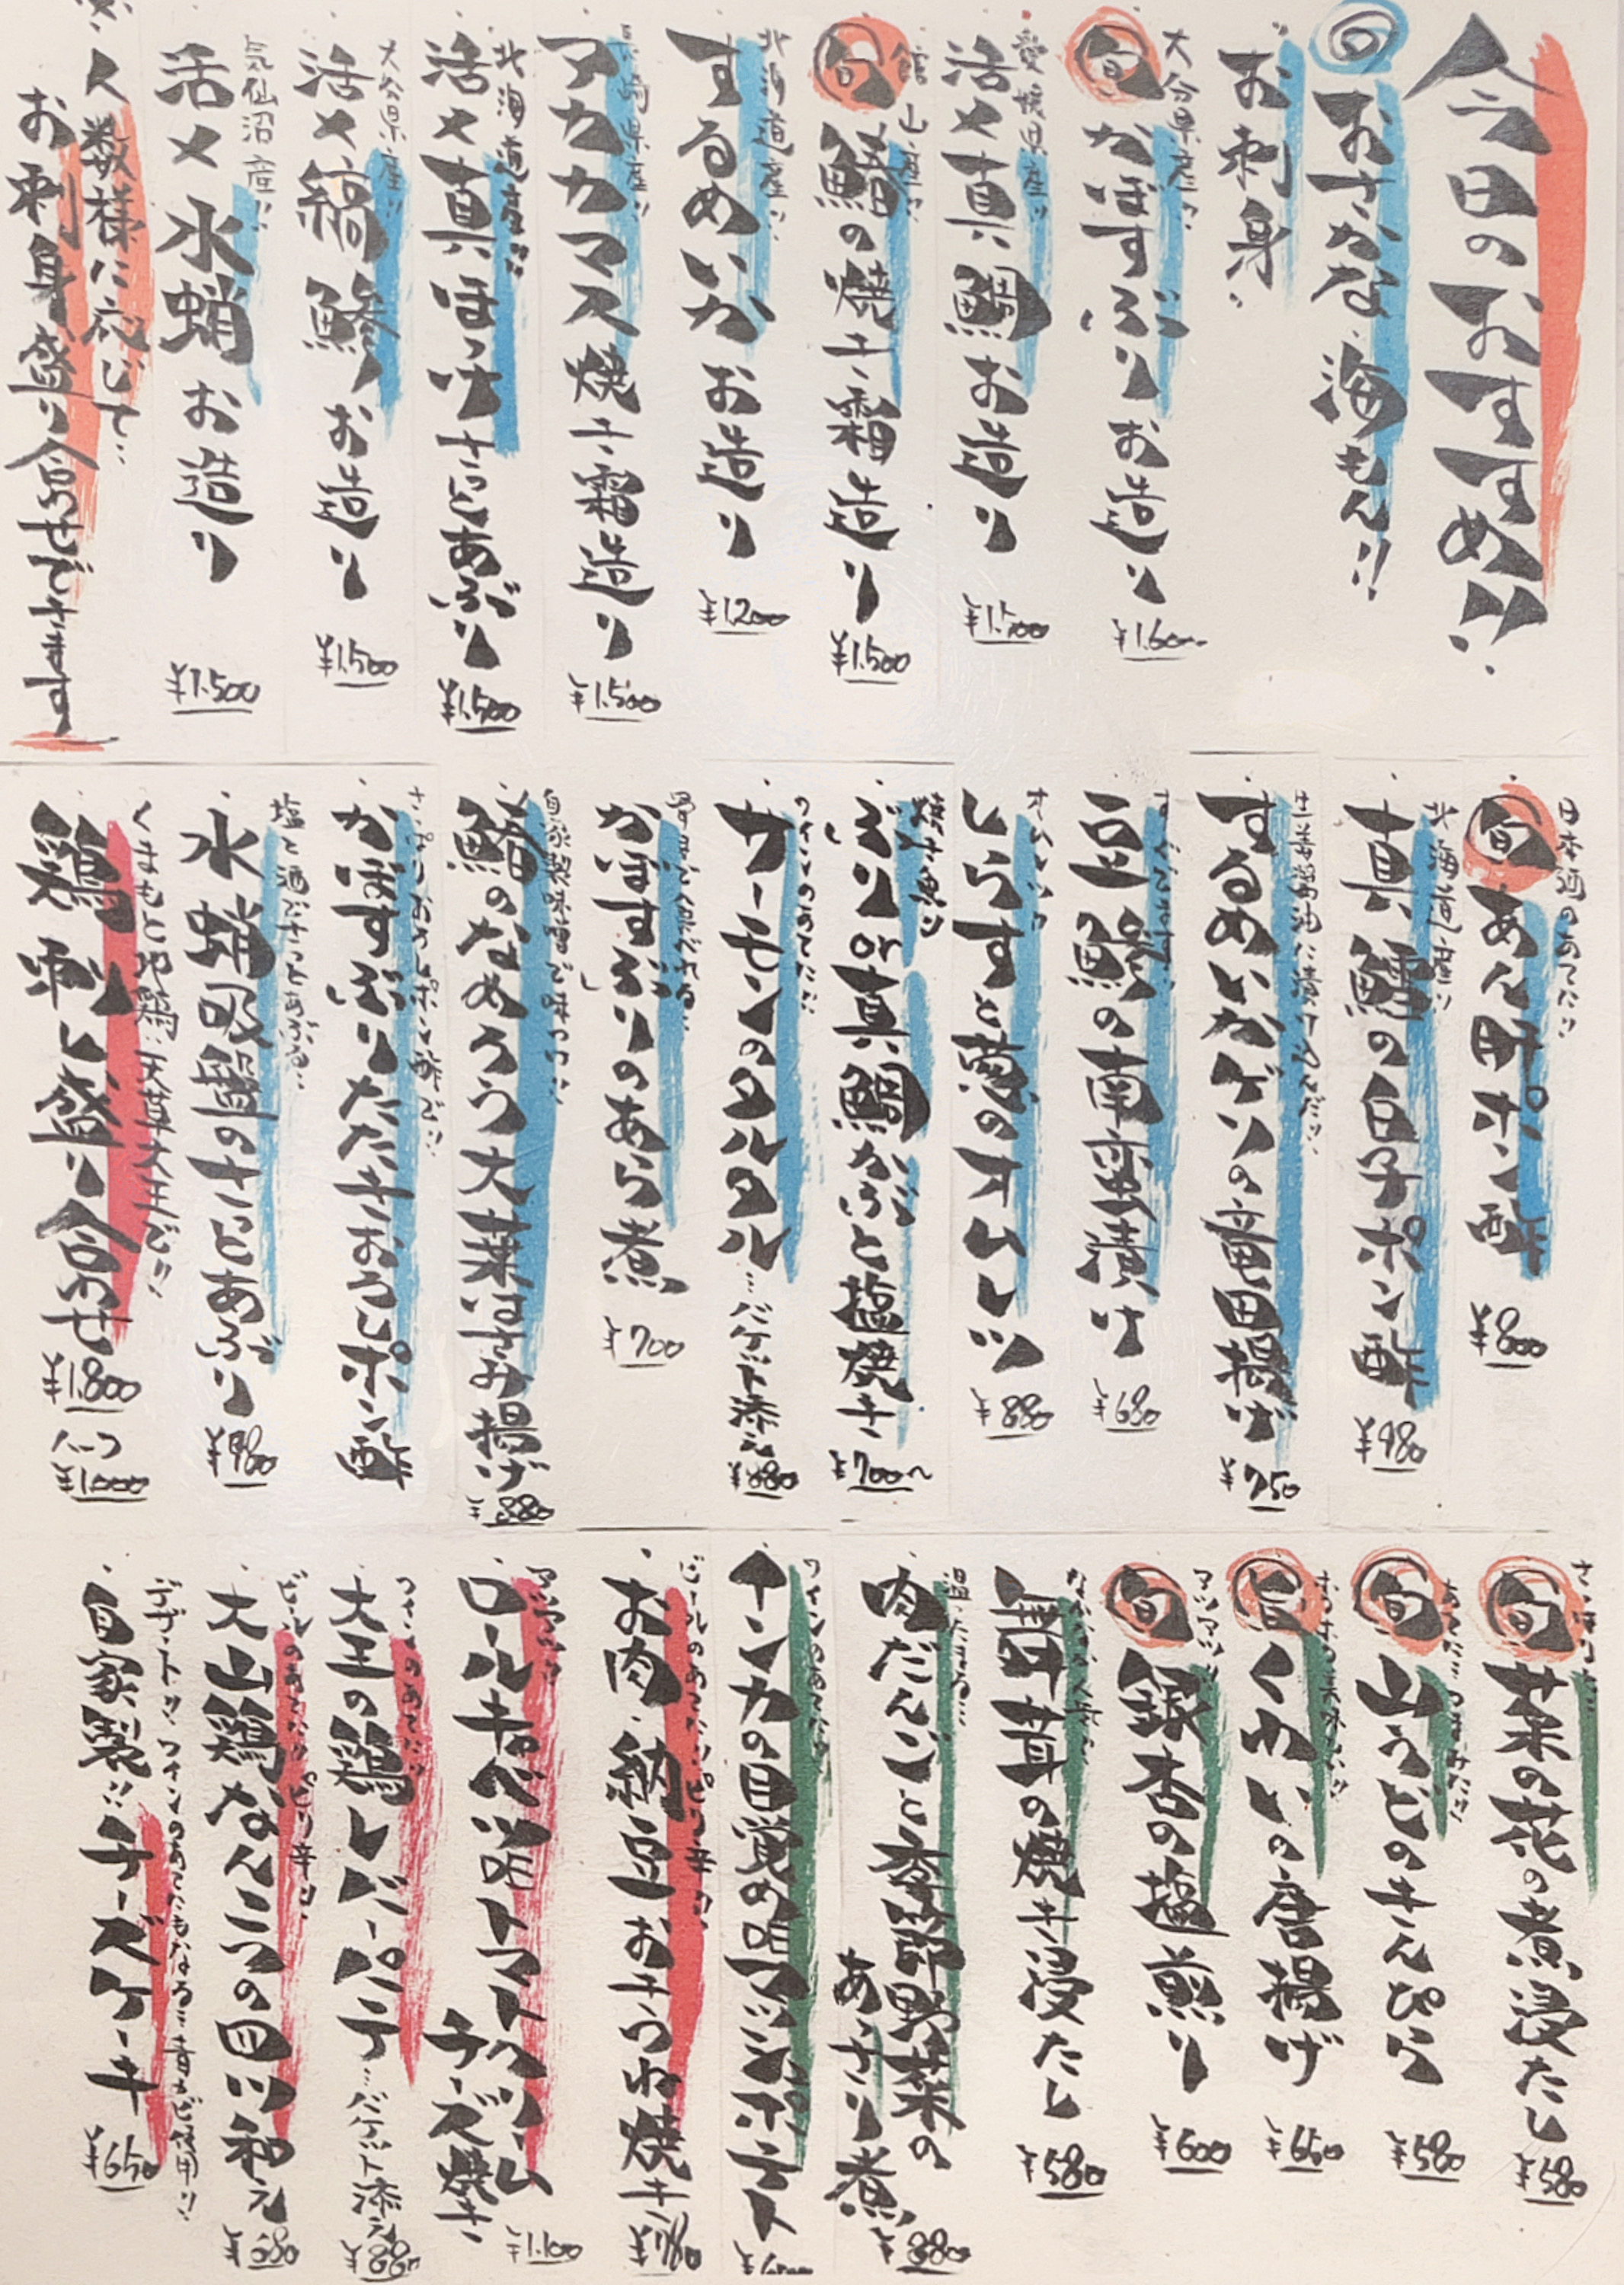 今日のおすすめ!!
旬 おさかな、海もん!!
お刺身
大分県産!!
旬 かぼすぶりお造り
¥1.600
愛媛県産!!
活〆真鯛お造り
¥1.500
館山産!!
旬 鰆の焼き霜造り
¥1.500
北海道産!!
するめいかお造り
¥1.200
長崎県産!!
アカカマス焼き霜造り
¥1.500
北海道産!!
活〆真ほっけさっとあぶり
¥1.500
大分県産!!
活〆縞鯵お造り
¥1.500
気仙沼産!!
活〆水蛸お造り
¥1.500
人数様に応じて…
お刺身盛り合わせできます
日本酒のあてに!!
旬 あん肝ポン酢
¥800
北海道産!!
真鱈の白子ポン酢
¥980
生姜醤油に漬け込んだ!!
するめいかげその竜田揚げ
¥750
豆鯵の南蛮漬け
¥680
しらすと葱のオムレツ
¥880
焼き魚!!
ぶりor真鯛かぶと塩焼き
¥700〜
ワインのあてに!!
サーモンのタルタル…バケット添え
¥880
かぼすぶりのあら煮
¥700
自家製味噌で味つけ!!
鰆のなめろう大葉はさみ揚げ
¥880
さっぱりおろしポン酢で!!
かぼすぶりたたきおろしポン酢
塩と酒でさっとあぶる!!
水蛸吸盤のさっとあぶり
¥980
くまもと地鶏 天草大王で!!
鶏刺し盛り合わせ
¥1.800
ハーフ
¥1000
旬 菜の花の煮浸たし
¥580
旬 山うどのきんぴら
¥580
旬 くわいの唐揚げ
¥650
旬 銀杏の塩煎り
¥600
舞茸の焼き浸たし
¥580
肉だんごと季節野菜の
あっさり煮
¥880
ワインのあてに!!
インカの目覚め de アンチョビポテト
お肉、納豆おきつね焼き
¥780
アツアツ!!
ロールキャベツ de トマトクリーム
チーズ焼き
¥1.100
ワインのあてに!!
大王の鶏レバーパテ…バケット添え
¥880
ビールのあてに!! ピリ辛!!
大山鶏なんこつの四川和え
¥680
デザート!! ワインのあてにもなる二青かび使用!!
自家製!! チーズケーキ
¥650